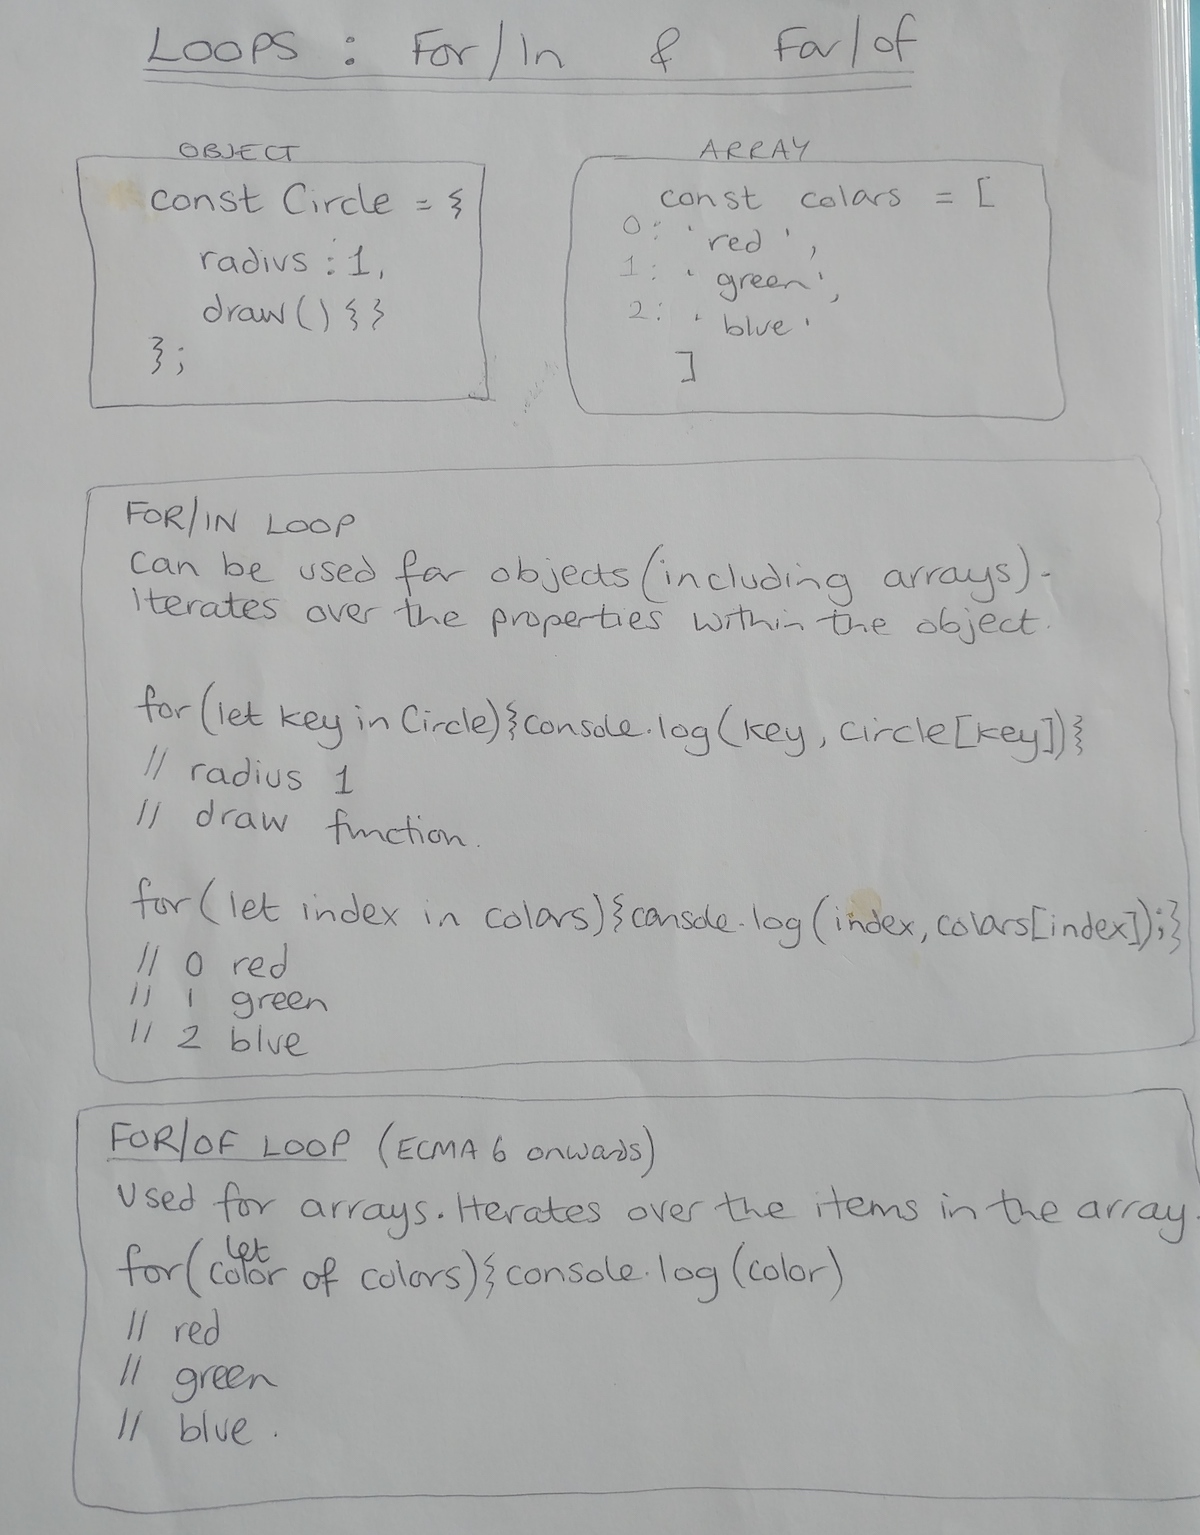 LOOPS : For/In & For/of
OBJECT
const Circle = {
radius : 1,
draw() {}
};
ARRAY
const colors = [
0: 'red',
1: 'green',
2: 'blue'
]
FOR/IN LOOP
Can be used for objects (including arrays).
Iterates over the properties within the object.
for (let key in Circle){console.log(key, circle[key])}
// radius 1
// draw function.
for (let index in colors){console.log(index, colors[index]);}
// 0 red
// 1 green
// 2 blue
FOR/OF LOOP (ECMA 6 onwards)
Used for arrays. Iterates over the items in the array.
for(let color of colors){console.log(color)
// red
// green
// blue.